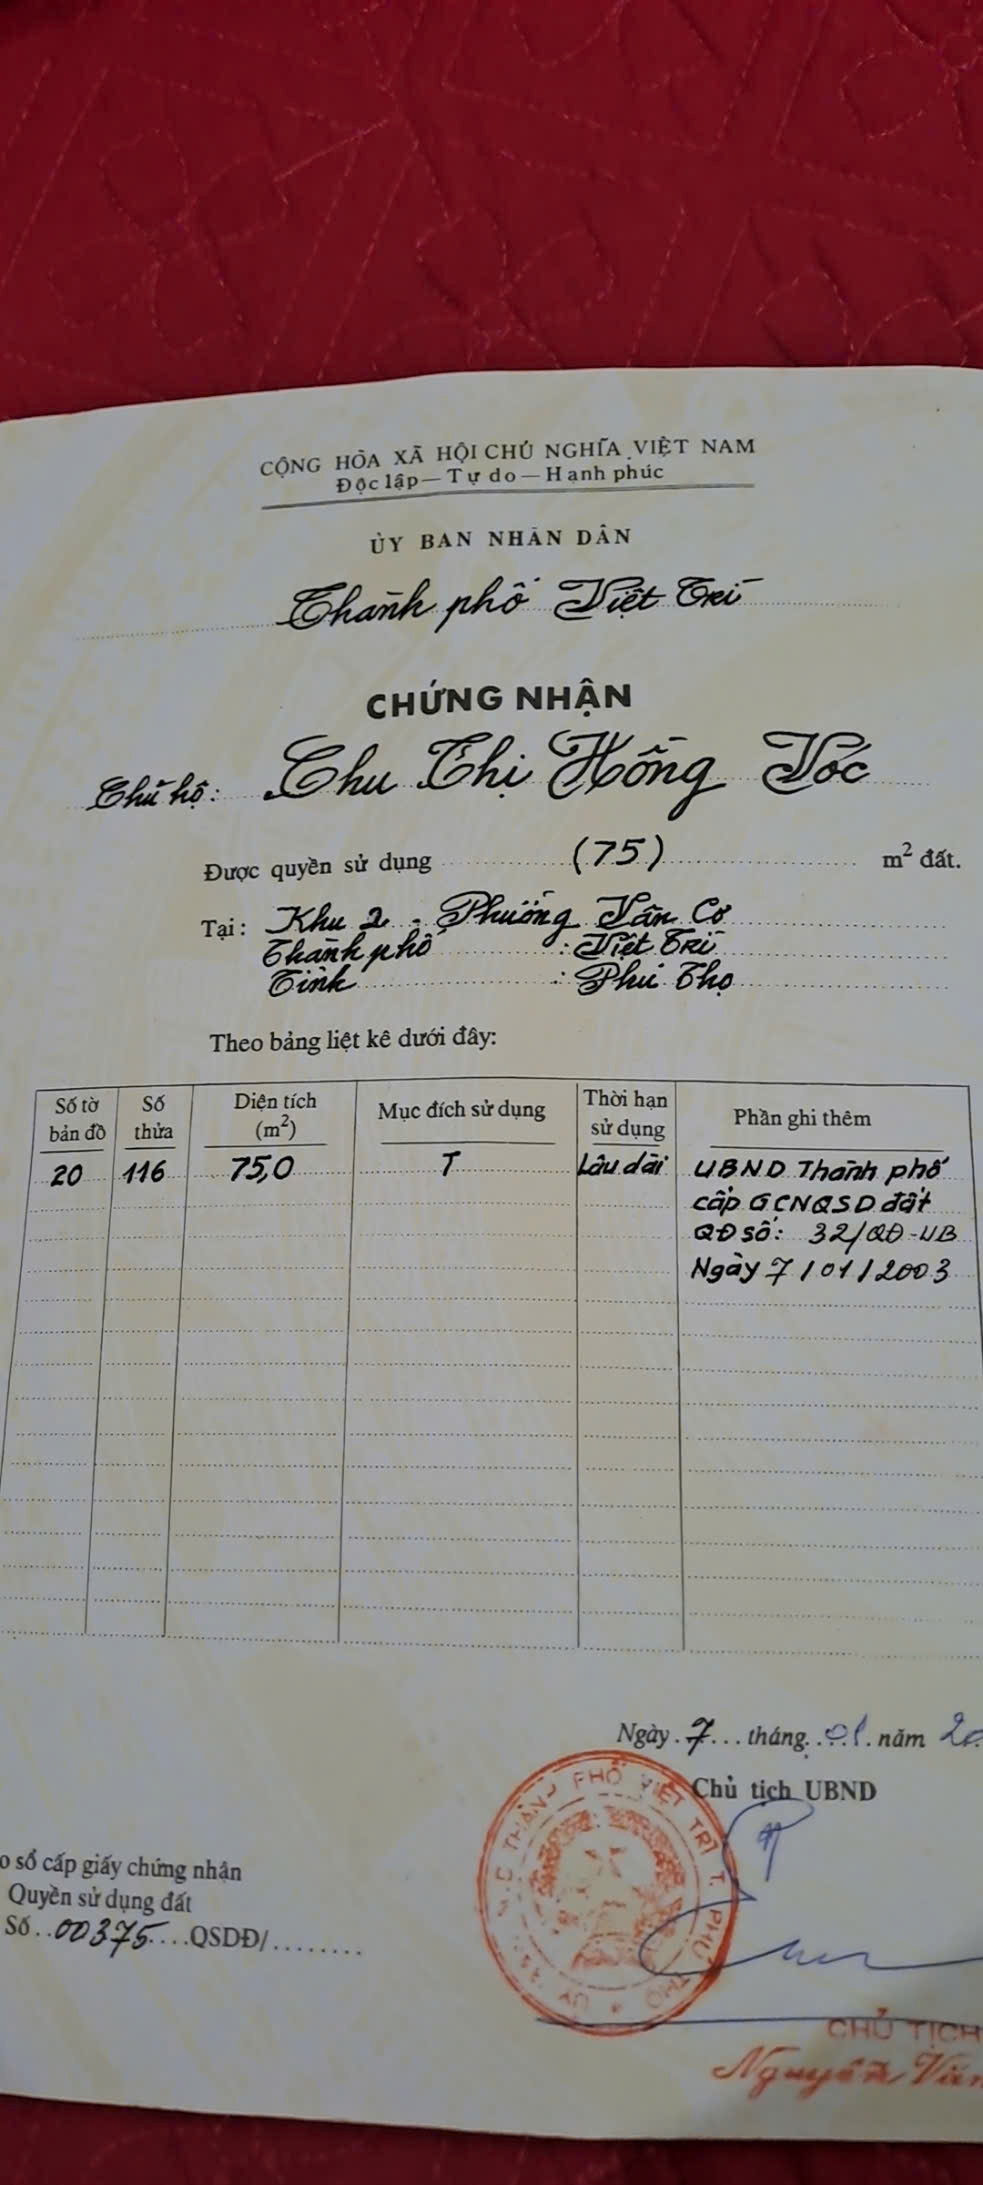 CỘNG HÒA XÃ HỘI CHỦ NGHĨA VIỆT NAM
Độc lập — Tự do — Hạnh phúc
ỦY BAN NHÂN DÂN
Thành phố Việt Trì
CHỨNG NHẬN
Chủ hộ: Chu Thị Hồng Vóc
Được quyền sử dụng (75) m² đất.
Tại: Khu 2 - Phường Vân Cơ
Thành phố : Việt Trì
Tỉnh : Phú Thọ
Theo bảng liệt kê dưới đây:
Số tờ bản đồ Số thửa Diện tích (m²) Mục đích sử dụng Thời hạn sử dụng Phần ghi thêm
20 116 75,0 T Lâu dài UBND Thành phố
cấp GCNQSD đất
QĐ số: 32/QĐ-UB
Ngày 7/01/2003
Ngày 7 tháng 01 năm 20
Chủ tịch UBND
THÀNH PHỐ VIỆT TRÌ T. PHÚ THỌ
sổ cấp giấy chứng nhận
Quyền sử dụng đất
Số 00375 QSDĐ/
CHỦ TỊCH
Nguyễn Văn